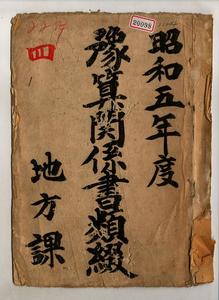 昭和五年度
豫算関係書類綴
地方課
四
20098